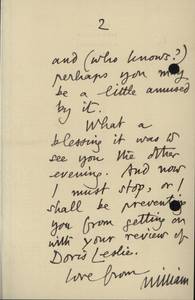 2
and (who knows?)
perhaps you may
be a little amused
by it.
What a
blessing it was to
see you the other
evening. And now
I must stop, or I
shall be preventing
you from getting on
with your review of
Doris Leslie.
love from William